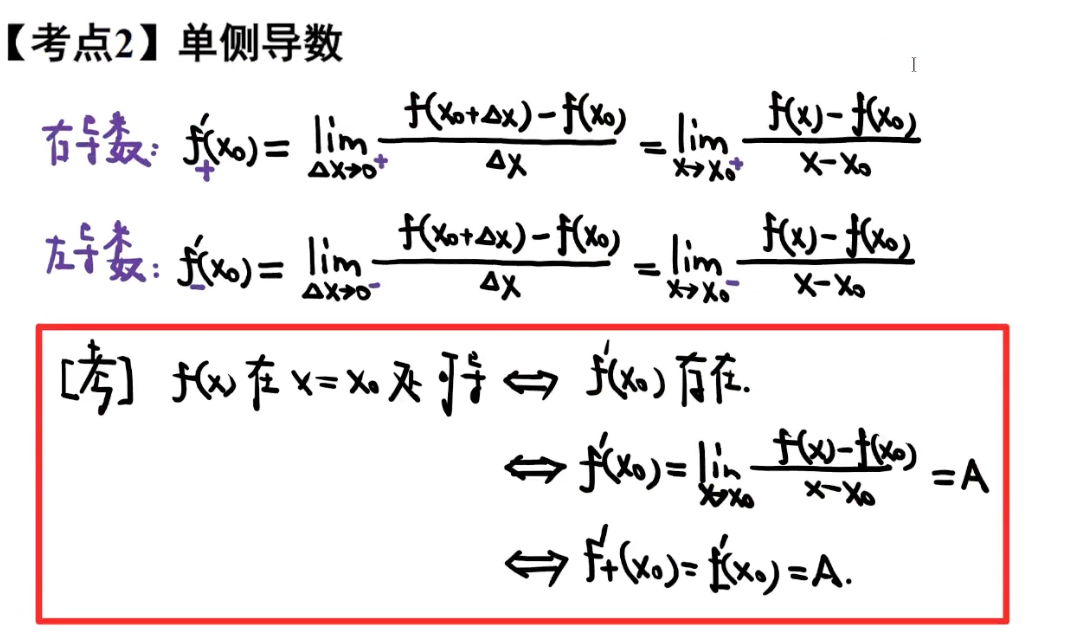 【考点2】单侧导数
右导数: f'₊(x₀) = lim_{Δx→0⁺} (f(x₀+Δx)-f(x₀))/Δx = lim_{x→x₀⁺} (f(x)-f(x₀))/(x-x₀)
左导数: f'₋(x₀) = lim_{Δx→0⁻} (f(x₀+Δx)-f(x₀))/Δx = lim_{x→x₀⁻} (f(x)-f(x₀))/(x-x₀)
[考] f(x)在x=x₀处可导 ⇔ f'(x₀)存在.
⇔ f'(x₀) = lim_{x→x₀} (f(x)-f(x₀))/(x-x₀) = A
⇔ f'₊(x₀) = f'₋(x₀) = A.